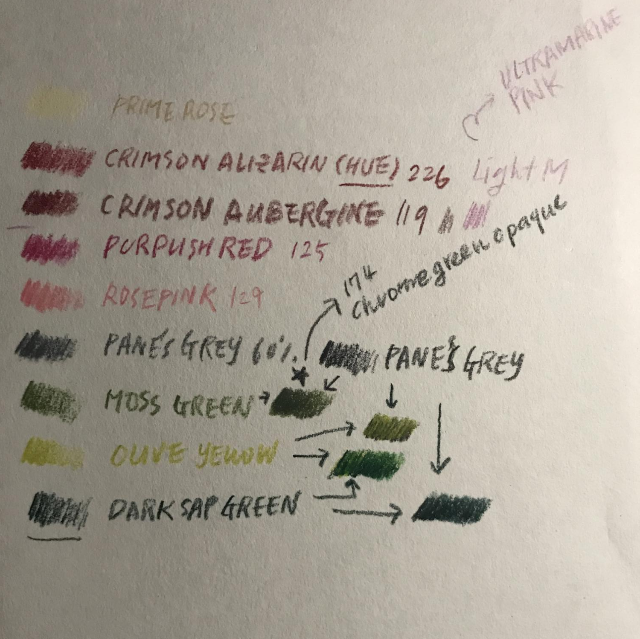 ULTRAMARINE
PINK
PRIME ROSE
CRIMSON ALIZARIN (HUE) 226 Light M
CRIMSON AUBERGINE 119
PURPLISH RED 125
ROSEPINK 129
174
chrome green opaque
PANE'S GREY 60%. PANE'S GREY
MOSS GREEN
OLIVE YELLOW
DARK SAP GREEN